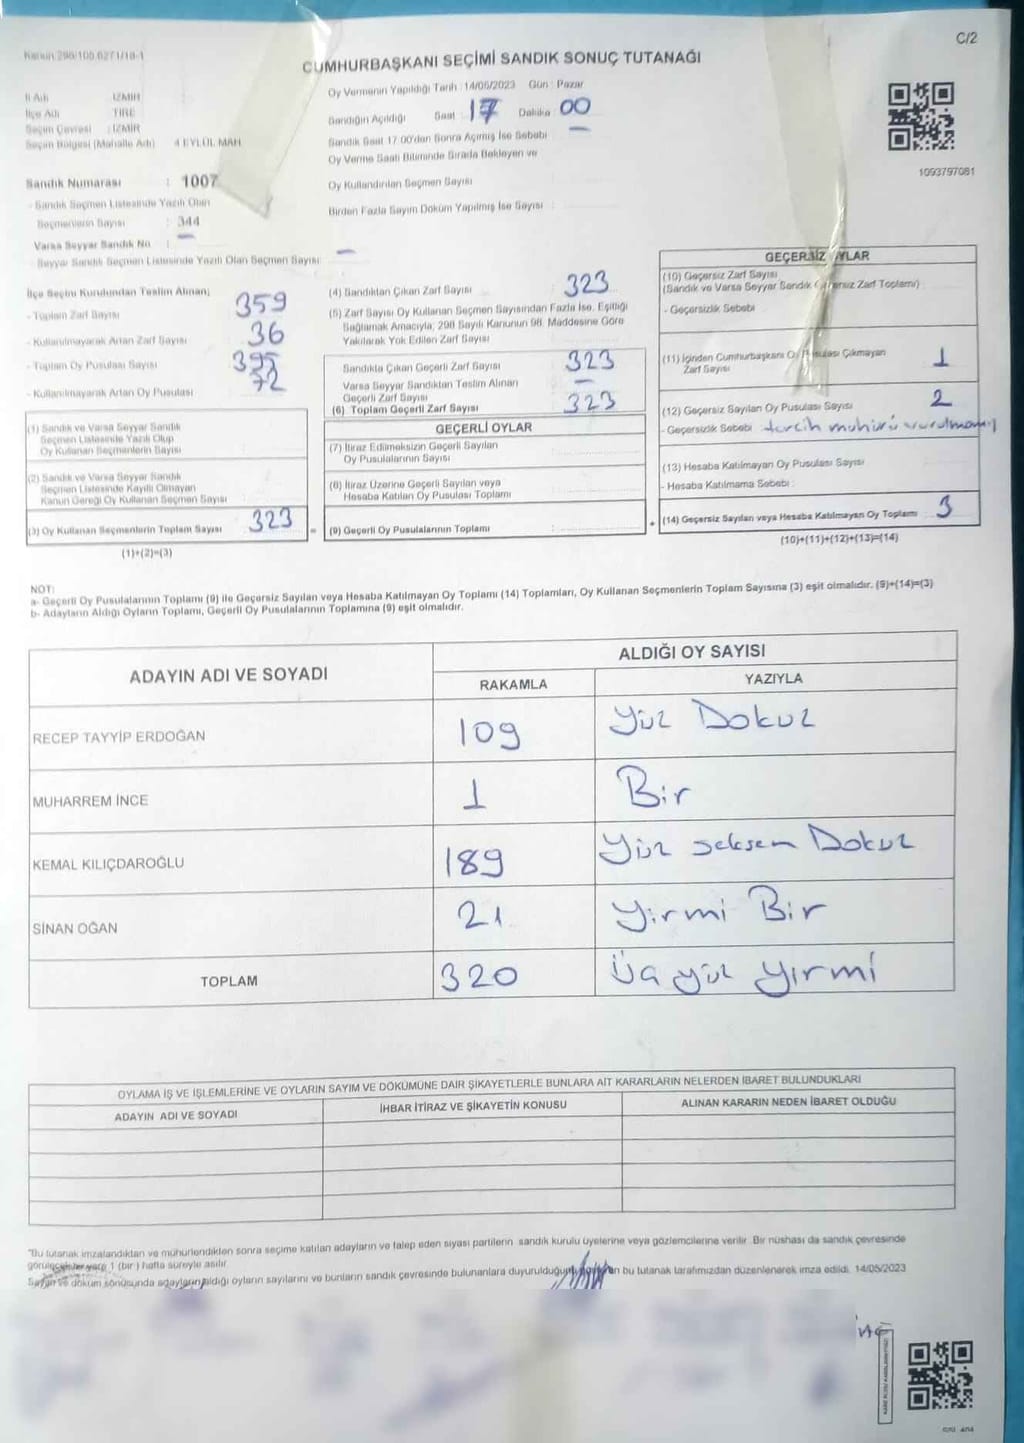 C/2
Kanun 298/105 6271/18-1
CUMHURBAŞKANI SEÇİMİ SANDIK SONUÇ TUTANAĞI
Oy Vermenin Yapıldığı Tarih : 14/05/2023 Gün : Pazar
İl Adı IZMIR
İlçe Adı TIRE
Seçim Çevresi : IZMIR
Seçim Bölgesi (Mahalle Adı) 4 EYLÜL MAH
Sandığın Açıldığı Saat 17 Dakika 00
Sandık Saat 17.00'dan Sonra Açılmış İse Sebebi —
Oy Verme Saati Bitiminde Sırada Bekleyen ve
Oy Kullandırılan Seçmen Sayısı
Birden Fazla Sayım Döküm Yapılmış İse Sayısı :
1093797081
Sandık Numarası : 1007
- Sandık Seçmen Listesinde Yazılı Olan
Seçmenlerin Sayısı : 344
Varsa Seyyar Sandık No : —
Seyyar Sandık Seçmen Listesinde Yazılı Olan Seçmen Sayısı : —
İlçe Seçim Kurulundan Teslim Alınan;
- Toplam Zarf Sayısı 359
- Kullanılmayarak Artan Zarf Sayısı 36
- Toplam Oy Pusulası Sayısı 395
- Kullanılmayarak Artan Oy Pusulası 72
(1) Sandık ve Varsa Seyyar Sandık
Seçmen Listesinde Yazılı Olup
Oy Kullanan Seçmenlerin Sayısı
(2) Sandık ve Varsa Seyyar Sandık
Seçmen Listesinde Kayıtlı Olmayan
Kanun Gereği Oy Kullanan Seçmen Sayısı
(3) Oy Kullanan Seçmenlerin Toplam Sayısı 323
(1)+(2)=(3)
(4) Sandıktan Çıkan Zarf Sayısı 323
(5) Zarf Sayısı Oy Kullanan Seçmen Sayısından Fazla İse, Eşitliği
Sağlamak Amacıyla, 298 Sayılı Kanunun 98. Maddesine Göre
Yakılarak Yok Edilen Zarf Sayısı
Sandıkta Çıkan Geçerli Zarf Sayısı 323
Varsa Seyyar Sandıktan Teslim Alınan
Geçerli Zarf Sayısı —
(6) Toplam Geçerli Zarf Sayısı 323
GEÇERLİ OYLAR
(7) İtiraz Edilmeksizin Geçerli Sayılan
Oy Pusulalarının Sayısı
(8) İtiraz Üzerine Geçerli Sayılan veya
Hesaba Katılan Oy Pusulası Toplamı
= (9) Geçerli Oy Pusulalarının Toplamı :
GEÇERSİZ OYLAR
(10) Geçersiz Zarf Sayısı
(Sandık ve Varsa Seyyar Sandık Zarf Toplamı)
- Geçersizlik Sebebi
(11) İçinden Cumhurbaşkanı Çıkmayan
Zarf Sayısı 1
(12) Geçersiz Sayılan Oy Pusulası Sayısı 2
- Geçersizlik Sebebi tercih mühürü vurulmamış
(13) Hesaba Katılmayan Oy Pusulası Sayısı
- Hesaba Katılmama Sebebi :
+ (14) Geçersiz Sayılan veya Hesaba Katılmayan Oy Toplamı 3
(10)+(11)+(12)+(13)=(14)
NOT:
a- Geçerli Oy Pusulalarının Toplamı (9) ile Geçersiz Sayılan veya Hesaba Katılmayan Oy Toplamı (14) Toplamları, Oy Kullanan Seçmenlerin Toplam Sayısına (3) eşit olmalıdır. (9)+(14)=(3)
b- Adayların Aldığı Oyların Toplamı, Geçerli Oy Pusulalarının Toplamına (9) eşit olmalıdır.
ADAYIN ADI VE SOYADI ALDIĞI OY SAYISI
RAKAMLA YAZIYLA
RECEP TAYYİP ERDOĞAN 109 Yüz Dokuz
MUHARREM İNCE 1 Bir
KEMAL KILIÇDAROĞLU 189 Yüz seksen Dokuz
SİNAN OĞAN 21 Yirmi Bir
TOPLAM 320 Üç yüz yirmi
OYLAMA İŞ VE İŞLEMLERİNE VE OYLARIN SAYIM VE DÖKÜMÜNE DAİR ŞİKAYETLERLE BUNLARA AİT KARARLARIN NELERDEN İBARET BULUNDUKLARI
ADAYIN ADI VE SOYADI İHBAR İTİRAZ VE ŞİKAYETİN KONUSU ALINAN KARARIN NEDEN İBARET OLDUĞU
"Bu tutanak imzalandıktan ve mühürlendikten sonra seçime katılan adayların ve talep eden siyasi partilerin sandık kurulu üyelerine veya gözlemcilerine verilir. Bir nüshası da sandık çevresinde
görülecek bir yere 1 (bir) hafta süreyle asılır.
Sayım ve döküm sonusunda adayların aldığı oyların sayılarını ve bunların sandık çevresinde bulunanlara duyurulduğunu bu tutanak tarafımızdan düzenlenerek imza edildi. 14/05/2023